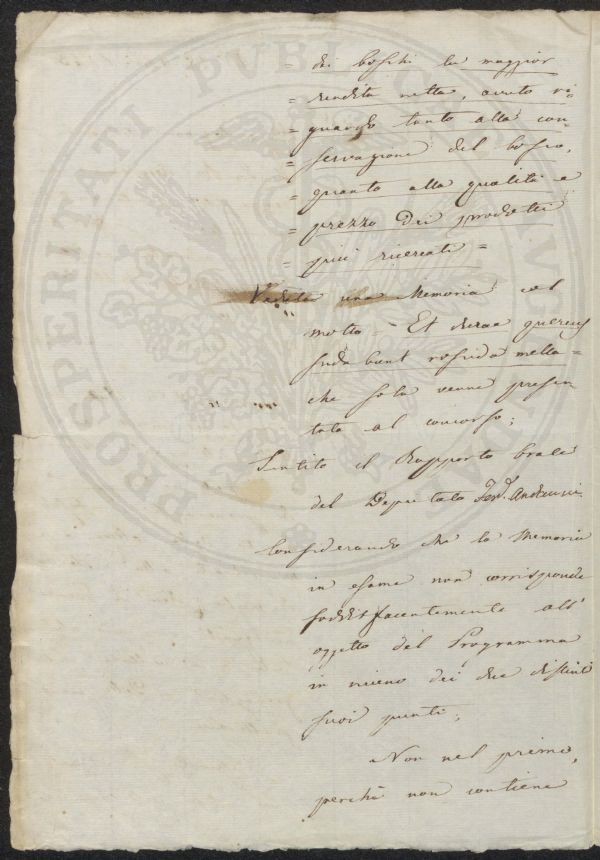 = dei boschi la maggior
= rendita netta, avuto ri=
= guardo tanto alla con=
= servazione del bosco,
= quanto alla qualità e
= prezzo dei prodotti
= più ricercati =
Veduta una Memoria col
motto = Et durae quercus
sudabunt roscida mella =
che sola venne presen=
tata al concorso;
Sentito il Rapporto
del Deputato Ferd. Andreucci
Considerando che la Memoria
in esame non corrisponde
soddisfacentemente all'
oggetto del Programma
in niuno dei due distinti
suoi punti;
Non nel primo,
perchè non contiene
PROSPERITATI PUBLICAE